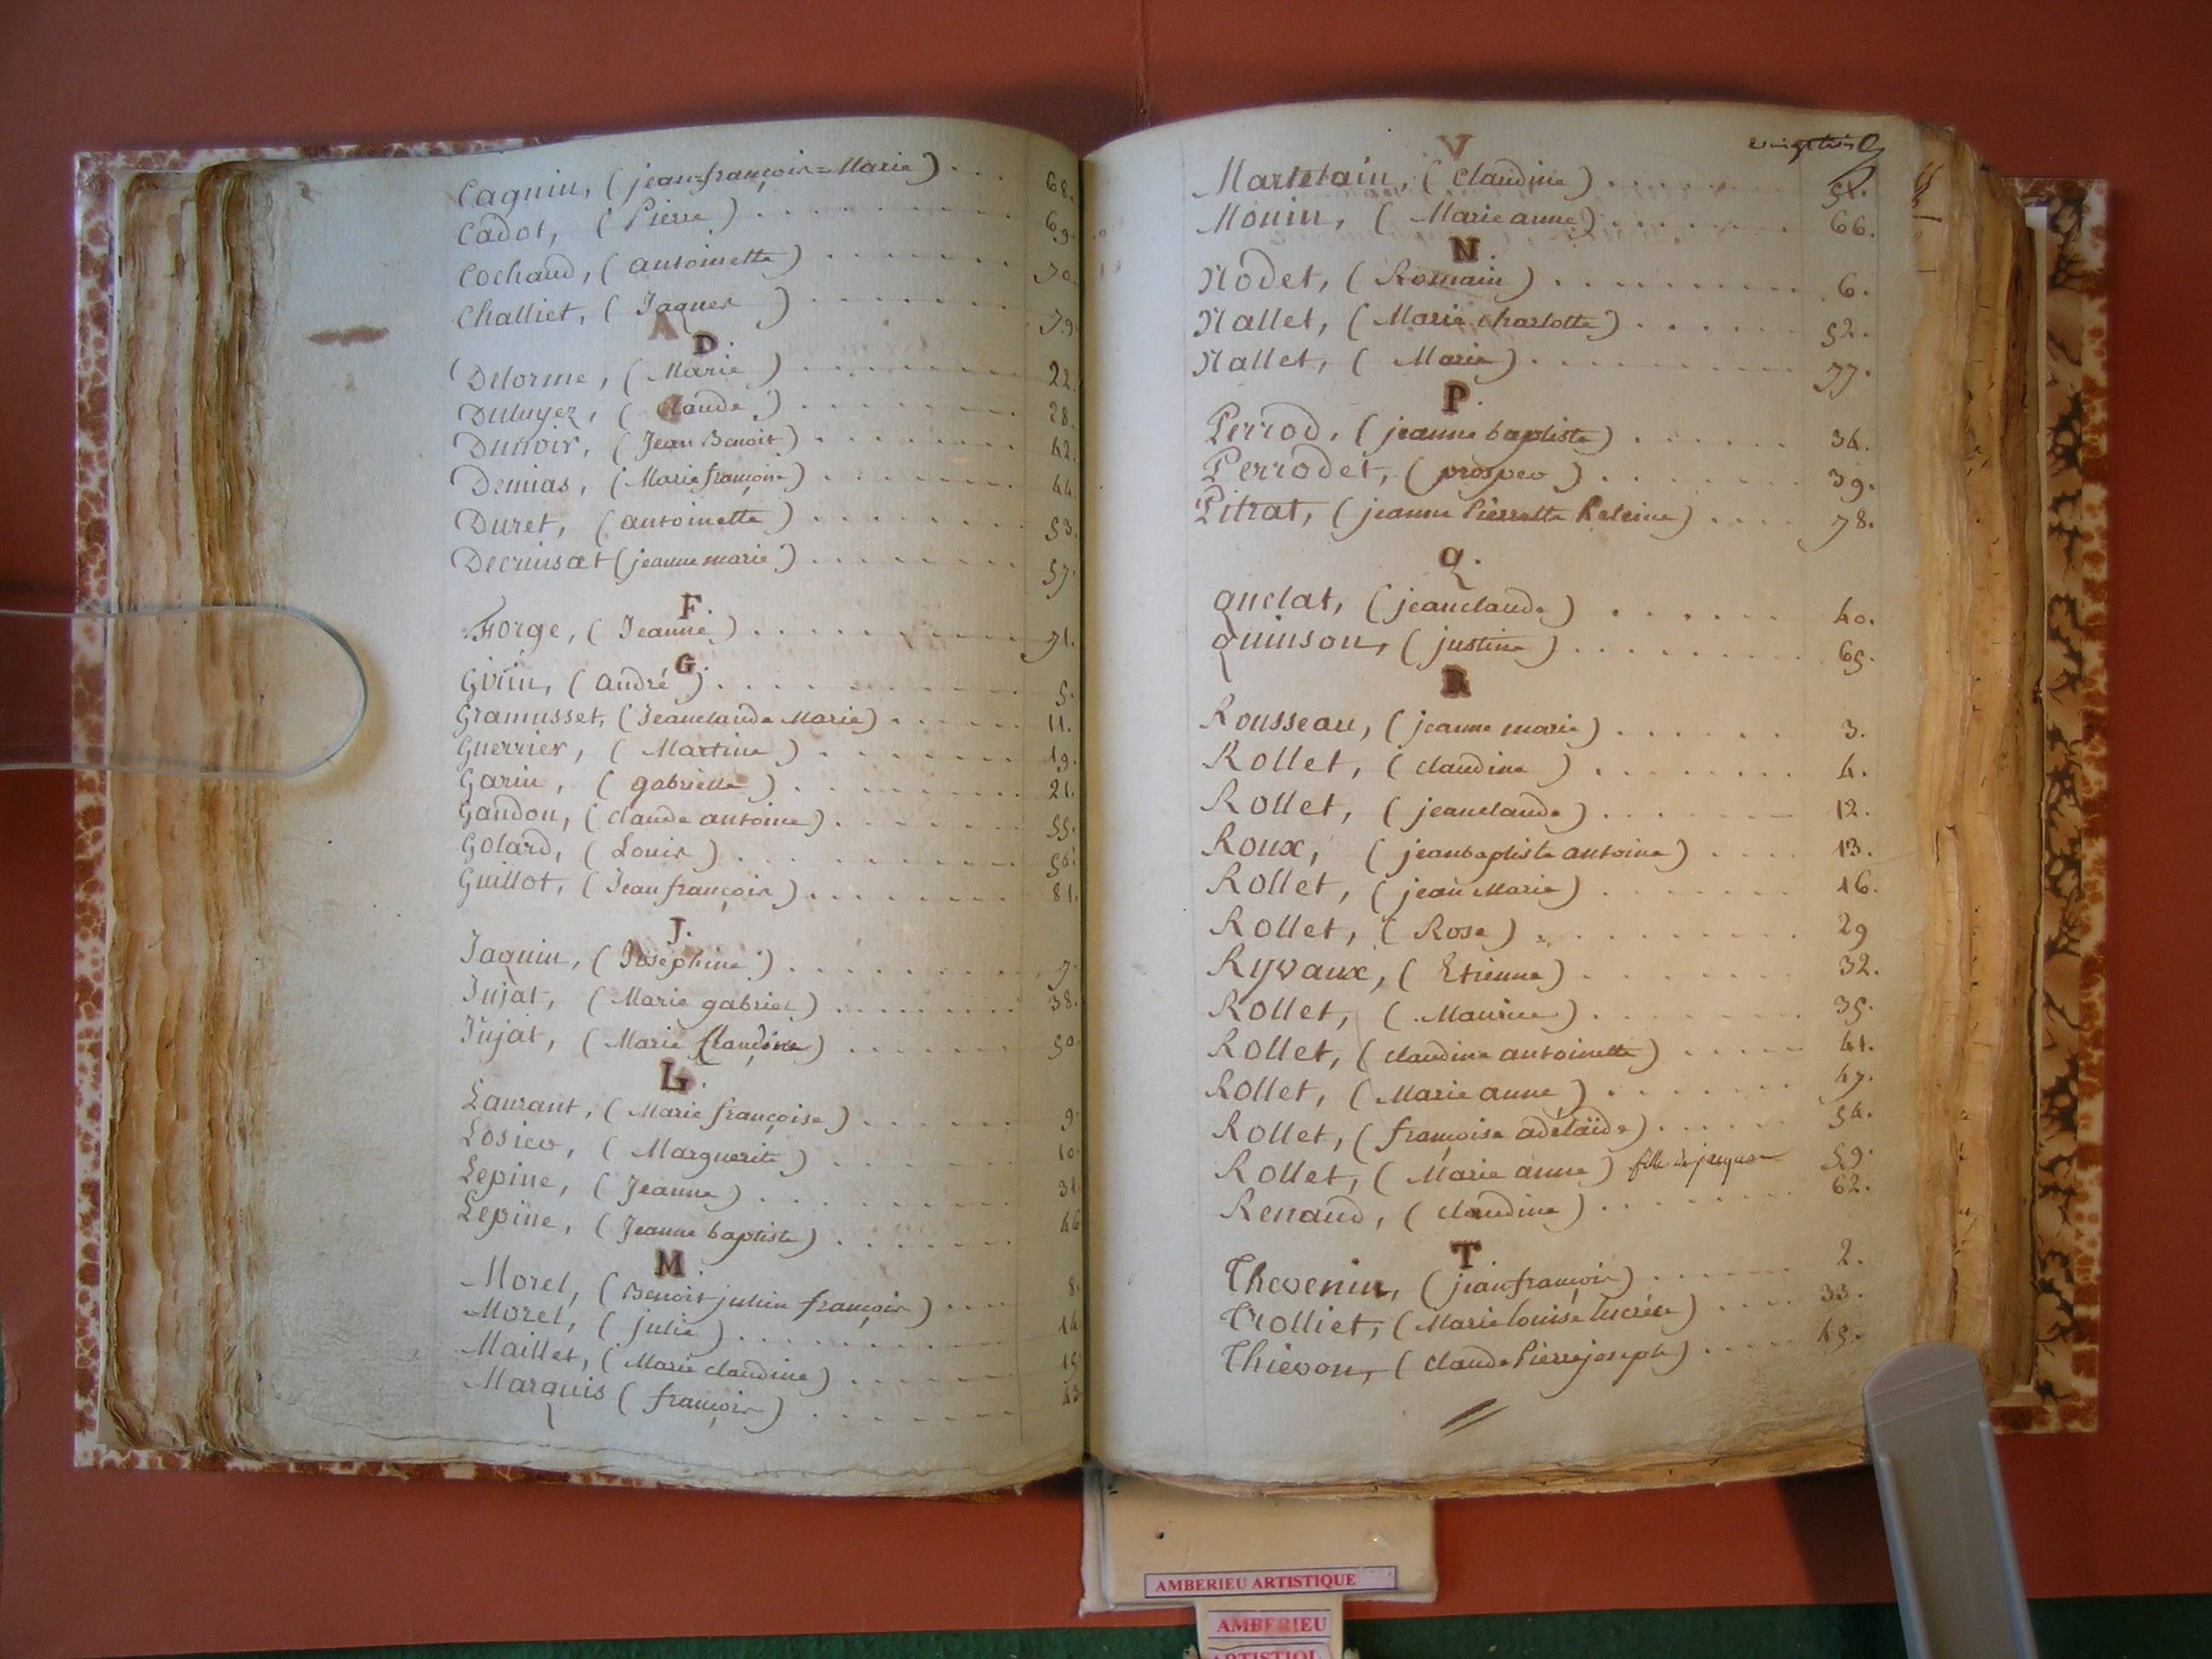 Cagnin, (jean=françois=Marie) . . . 68.
Cadot, (Pierre) . . . . . . . . 69.
Cochaud, (antoinette) . . . . . . 70.
Challiet, (Jaques) . . . . . . . 79.
D.
Delorme, (Marie) . . . . . . . 22.
Duluyez, (claude) . . . . . . . 28.
Dunoir, (Jean Benoit) . . . . . . 42.
Demias, (Marie françoise) . . . . . . 44.
Duret, (antoinette) . . . . . . . 53.
Decrinsat (jeanne marie) . . . . . . 57.
F.
Forge, (Jeanne) . . . . . . . . 71.
G.
Girin, (andré) . . . . . . . . 5.
Gramusset, (Jeanclaude Marie) . . . . . 11.
Guerrier, (Martine) . . . . . . . 19.
Garin, (gabrielle) . . . . . . . 21.
Gandon, (claude antoine) . . . . . . 55.
Golard, (Louis) . . . . . . . .
Guillot, (Jean françois) . . . . . . 81.
J.
Jaquin, (Josephine) . . . . . . . 7.
Jujat, (Marie gabriel) . . . . . . 38.
Jujat, (Marie Claudine) . . . . . . 50
L.
Laurant, (Marie françoise) . . . . . 9.
Losieo, (Marguerite) . . . . . . 10.
Lepine, (Jeanne) . . . . . . . 31
Lepine, (Jeanne baptiste) . . . . . . 46
M.
Morel, (Benoit julien françois) . . . . 8.
Morel, (julie) . . . . . . . . 14
Maillet, (Marie claudine) . . . . . . 15
Marquis (françois) . . . . . . . 43
V
Martelain, (claudine) . . . . . .
Monin, (Marie anne) . . . . . . . 66.
N.
Nodet, (Romain) . . . . . . . . 6.
Nallet, (Marie charlotte) . . . . . . 52.
Nallet, (Marie) . . . . . . . . 77.
P.
Perrod, (jeanne baptiste) . . . . . . 34.
Perrodet, (prosper) . . . . . . . 39.
Pitrat, (jeanne Pierrette) . . . . 78.
Q.
quelat, (jeanclaude) . . . . . . 40.
quinson, (justine) . . . . . . . 65.
R
Rousseau, (jeanne marie) . . . . . . 3.
Rollet, (claudine) . . . . . . . 4.
Rollet, (jeanclaude) . . . . . . . 12.
Roux, (jeanbaptiste antoine) . . . . 13.
Rollet, (jean Marie) . . . . . . . 16.
Rollet, (Rose) . . . . . . . . 29
Ryvaux, (Etienne) . . . . . . . 32.
Rollet, (Maurice) . . . . . . . 35.
Rollet, (claudine antoinette) . . . . . 41.
Rollet, (Marie anne) . . . . . . . 47.
Rollet, (françoise adelaïde) . . . . . 54.
Rollet, (Marie anne) fille de jaques 59.
Renaud, (claudine) . . . . . . . 62.
T
Thevenin, (jean françois) . . . . . . 2.
Trolliet, (Marie louise lucrece) . . . . 33.
Thievon, (claude Pierre joseph) . . . . 45.
AMBERIEU ARTISTIQUE
AMBERIEU